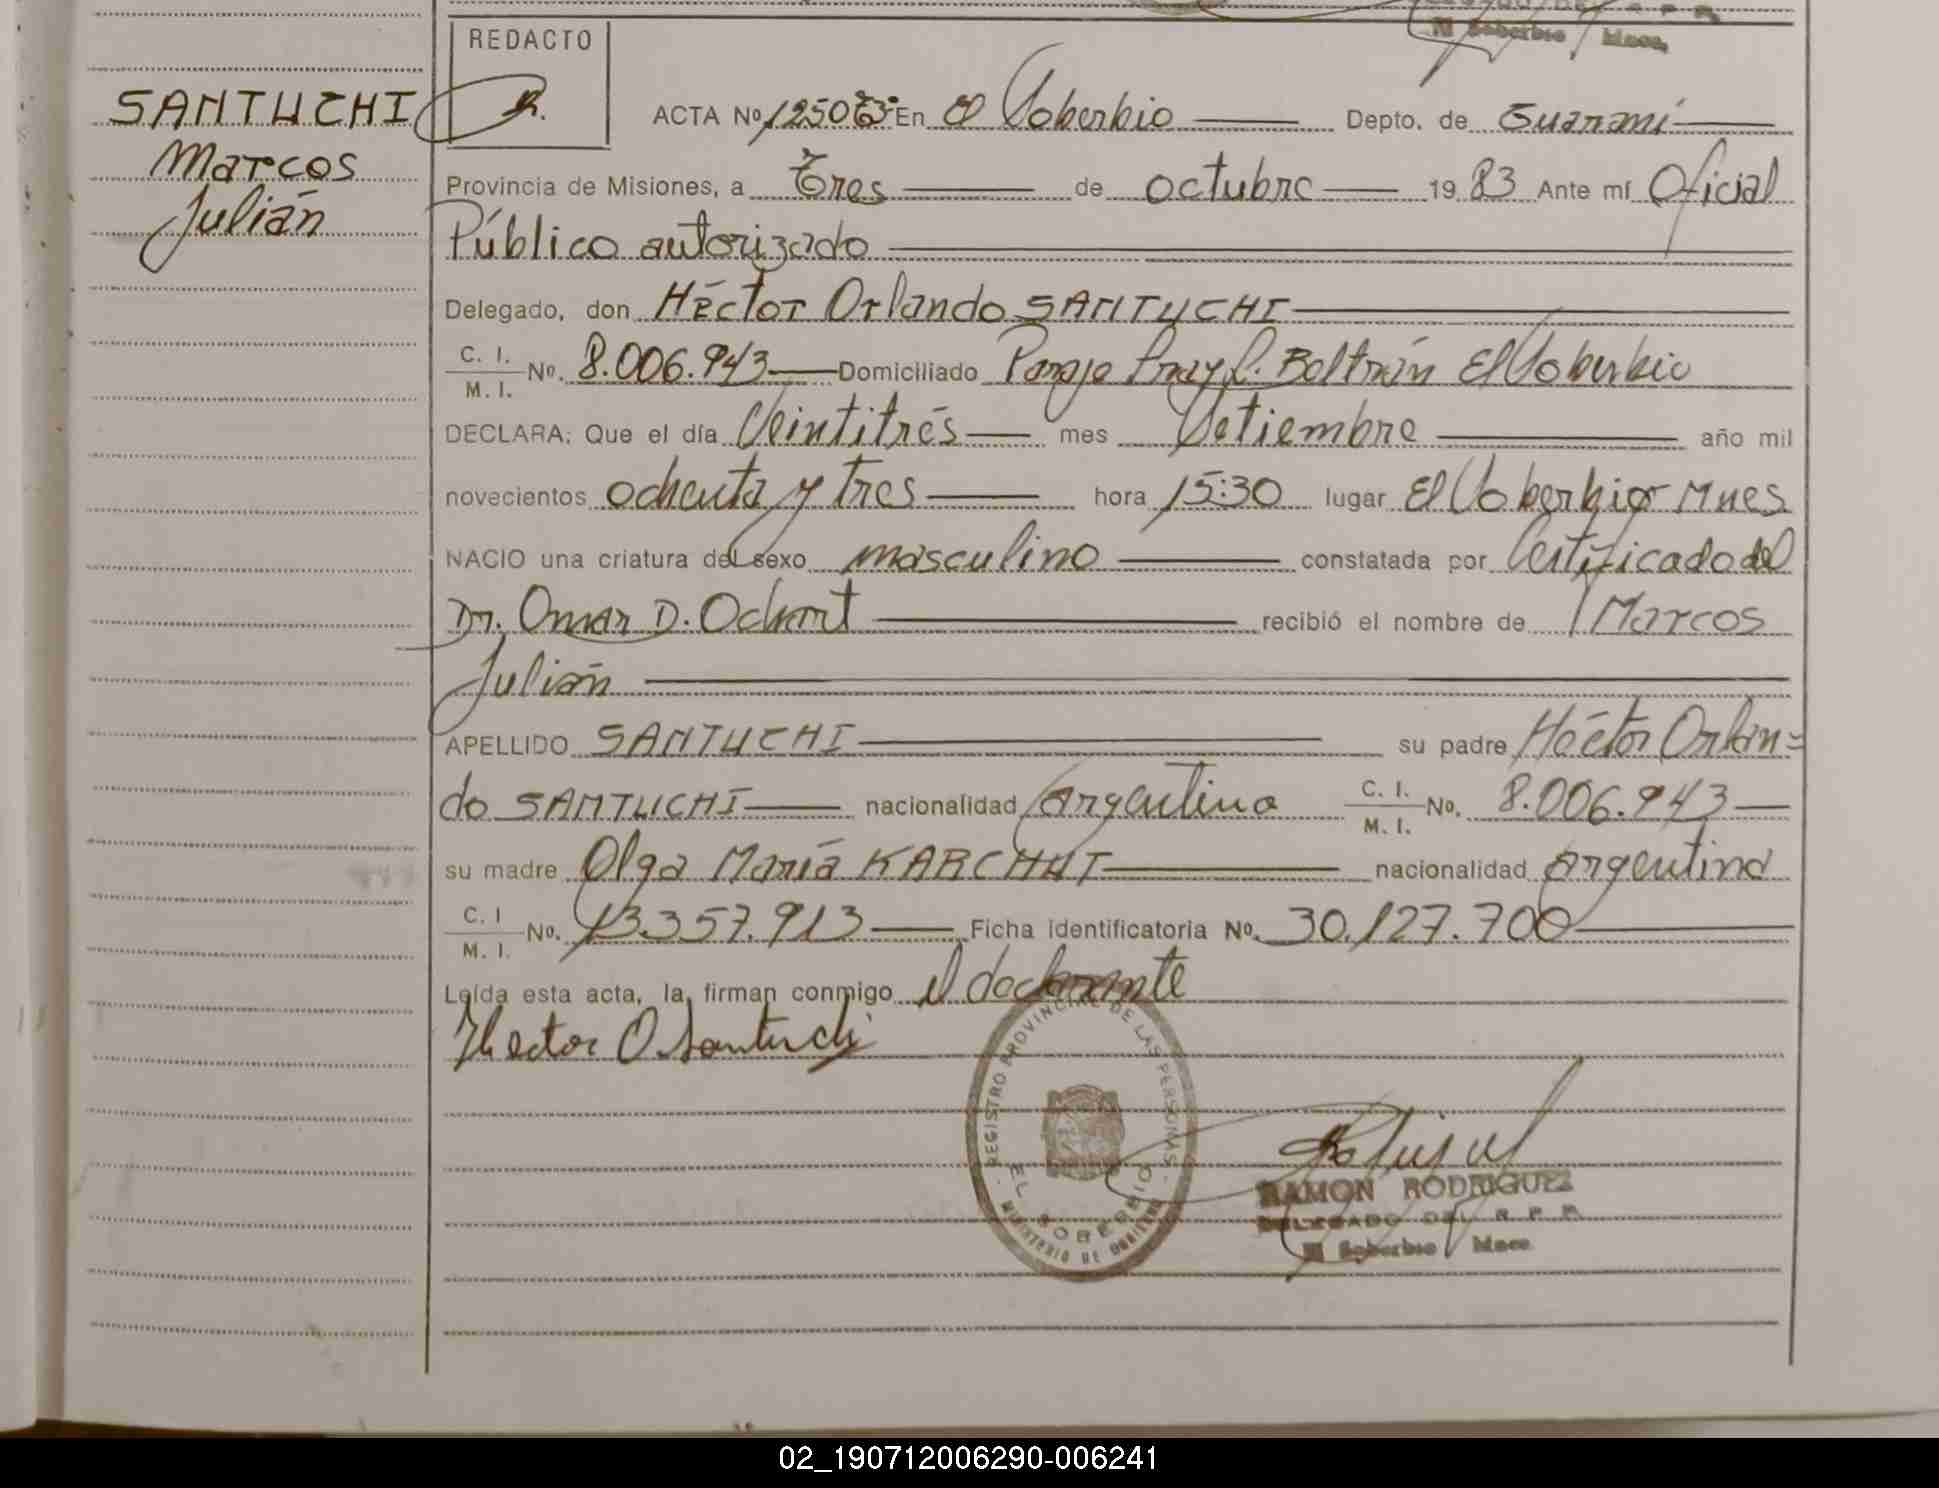 REDACTO
SANTUCHI
Marcos
Julián
ACTA Nº 1250 En El Soberbio Depto. de Guaraní
Provincia de Misiones, a Tres de octubre 1983 Ante mí Oficial
Público autorizado
Delegado, don Héctor Orlando SANTUCHI
C. I. / M. I. Nº. 8.006.943 Domiciliado Paraje Fray L. Beltrán El Soberbio
DECLARA: Que el día Veintitrés mes Setiembre año mil
novecientos ochenta y tres hora 15:30 lugar El Soberbio Mnes
NACIO una criatura del sexo masculino constatada por Certificado del
Dr. Omar D. recibió el nombre de Marcos
Julián
APELLIDO SANTUCHI su padre Héctor Orlan=
do SANTUCHI nacionalidad Argentina C. I. / M. I. Nº. 8.006.943
su madre Olga María KARCHUT nacionalidad Argentina
C. I / M. I. Nº. 13.357.913 Ficha identificatoria Nº. 30.127.700
Leída esta acta, la firman conmigo el declarante
Hector O. Santuchi
REGISTRO PROVINCIAL DE LAS PERSONAS
EL SOBERBIO
MINISTERIO DE GOBIERNO
RAMON RODRIGUEZ
DELEGADO DEL R. P. P.
El Soberbio Mnes.
02_190712006290-006241